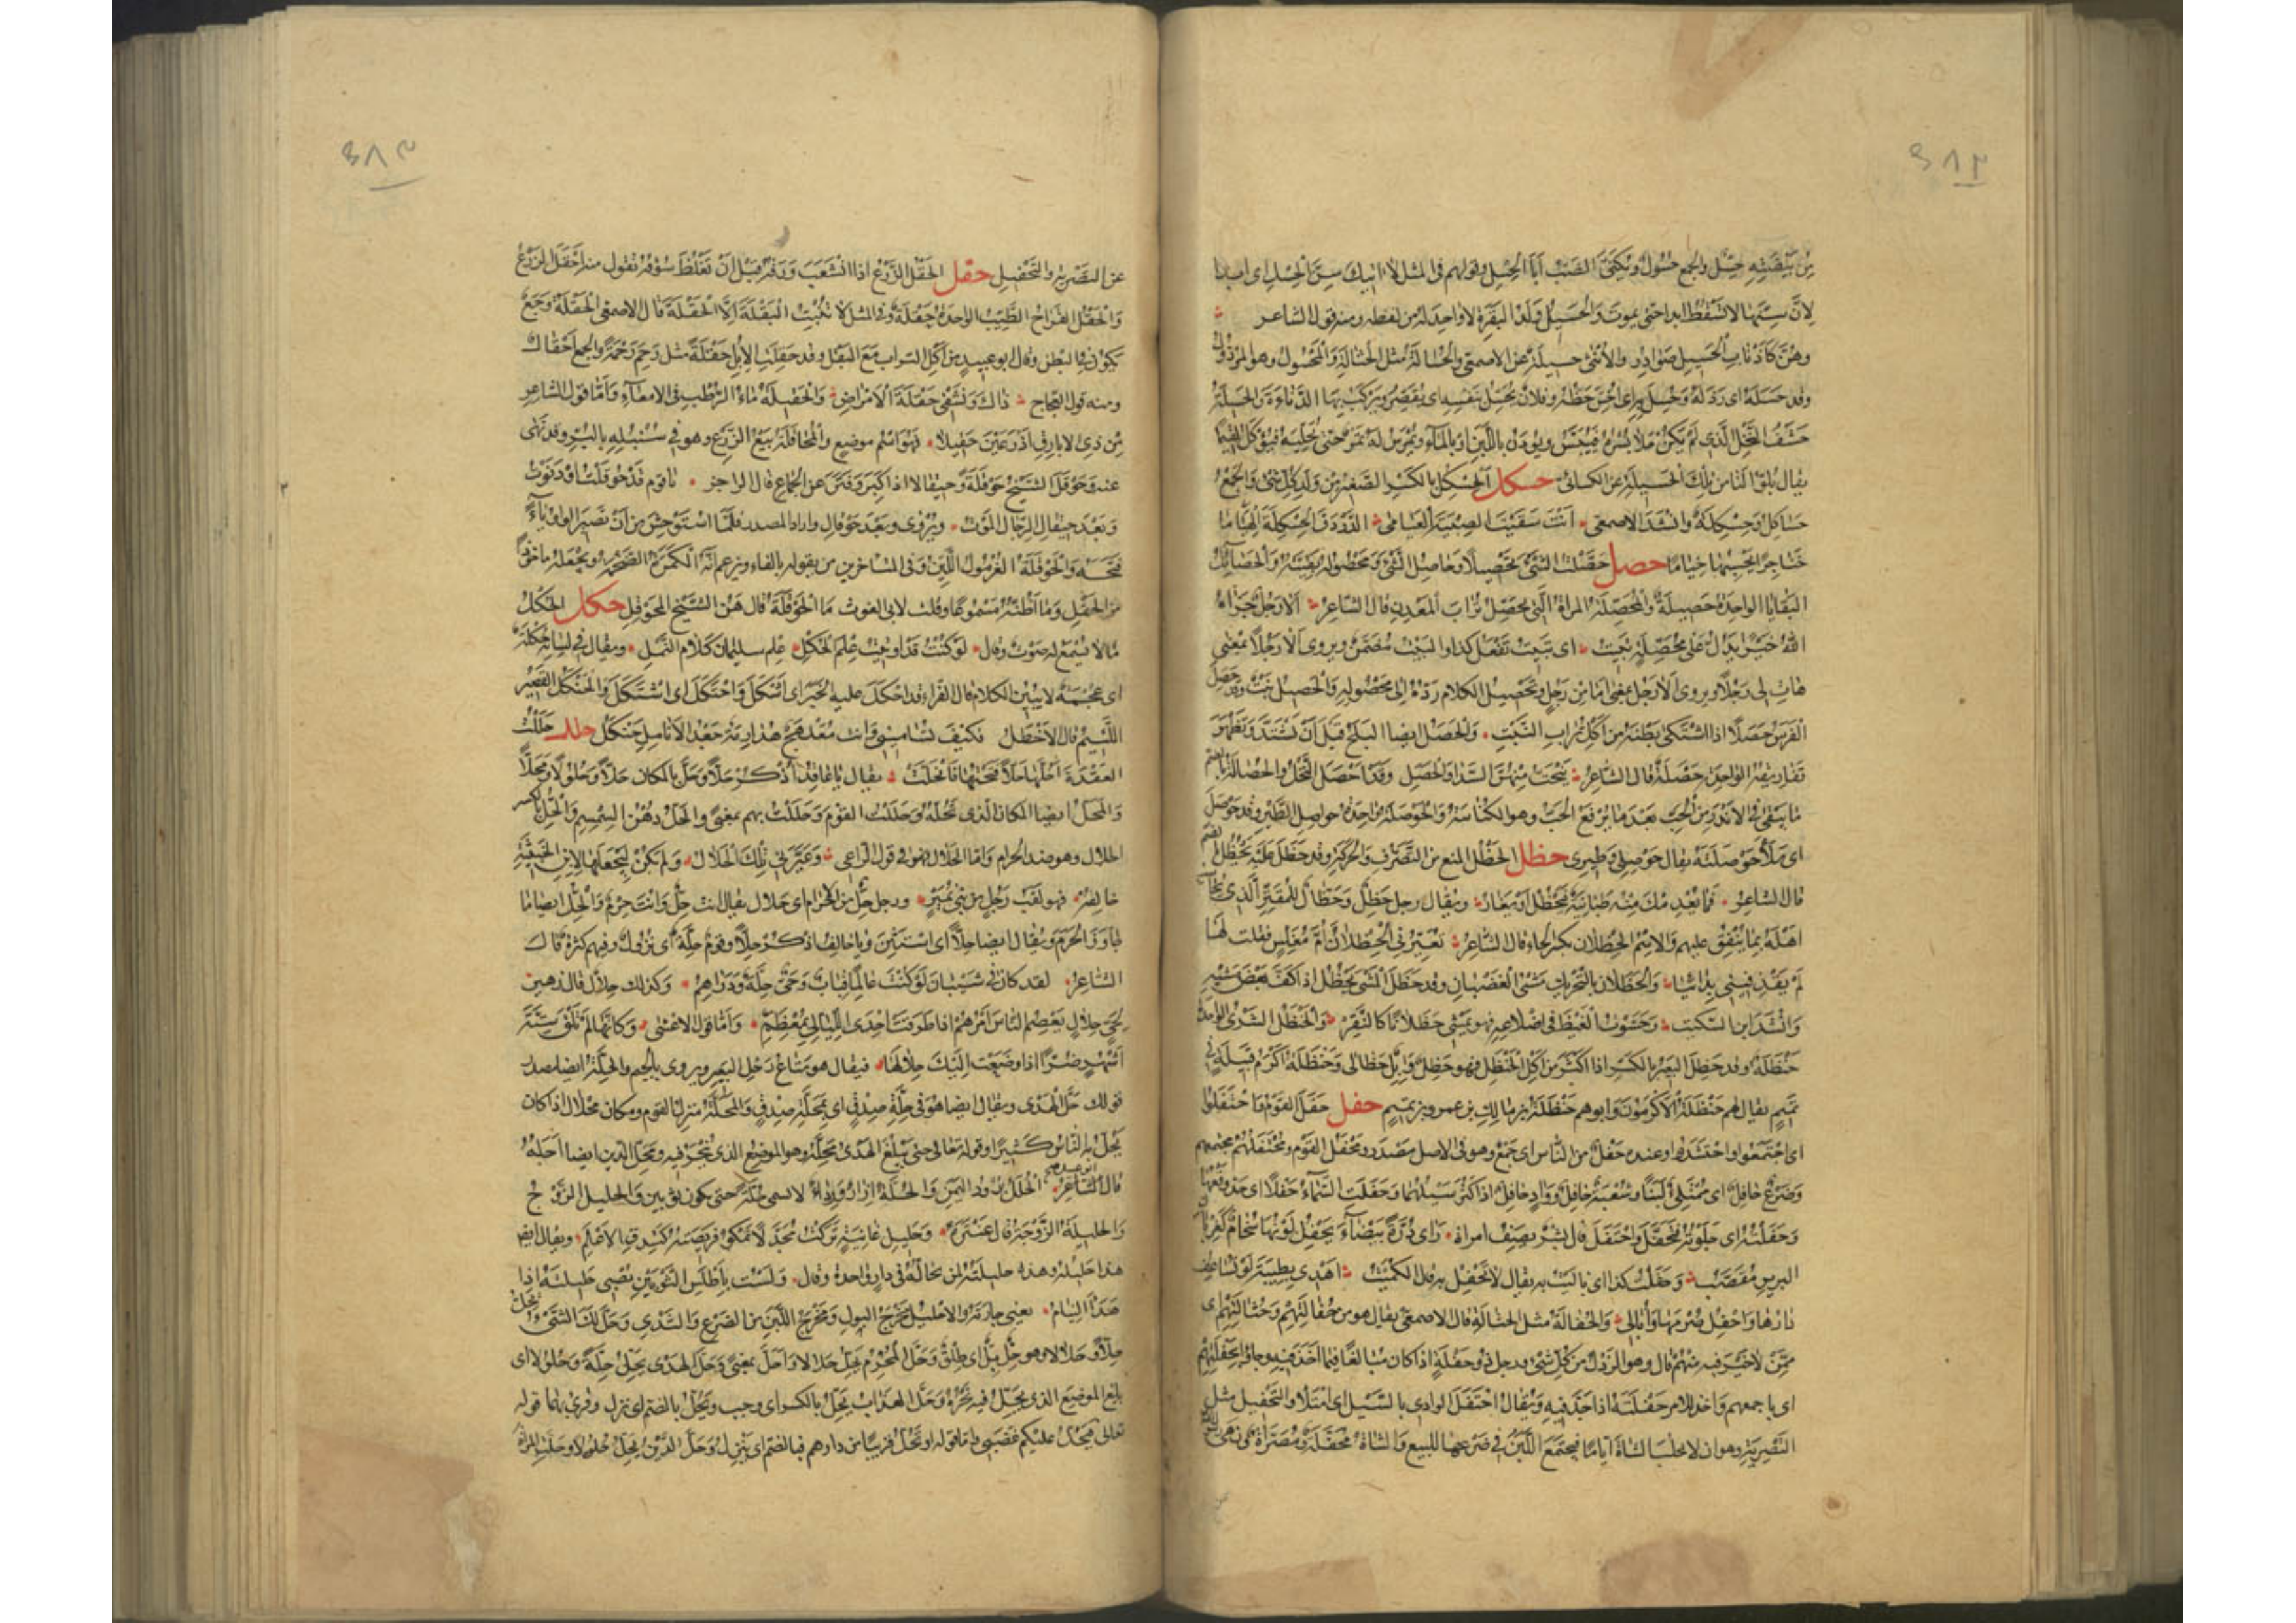 ٤٨٢
من بيضته حسل والجمع حسول ويكنى الضب ابا الحسل وقولهم فى المثل لا اتيك سن الحسل اى ابدا
لان سنها لا تسقط ابدا حتى يموت والحسيل ولد البقرة لا واحد له من لفظه ومنه قول الشاعر
وهن كاذناب الحسيل صوادر والانثى حسيلة عن الاصمعى والحسالة مثل الحثالة والمحسول وهو المرذول
وقد حسله اى رذله وحسل به اى اخس حظه وفلان يحسل بنفسه اى يقصر ويركب بها الدناءة والحسيلة
حشف النخل الذى لم يكن حلا بسره فييبس ويودن باللبن او بالماء ويمرس له تمر حتى يحليه فيؤكل لقيما
يقال بلوا لنا من تلك الحسيلة عن الكسائى حسكل الحسكل بالكسر الصغير من ولد كل شىء والجمع
حساكل وحسكلة وانشد الاصمعى انت سقيت الصبية العيامى الدردق الحسكلة الهياما
خناجرا تحسبها خياما حصل حصلت الشىء تحصيلا وحاصل الشىء ومحصوله بقيته والحصائل
البقايا الواحدة حصيلة والمحصلة المراة التى تحصل تراب المعدن قال الشاعر الا رجل جزاه
الله خيرا يدل على محصلة تبيت اى تبيت تفعل كذا والبيت مضمن ويروى الا رجلا بمعنى
هات لى رجلا ويروى الا رجل بمعنى اما من رجل وتحصيل الكلام رده الى محصوله والحصيل نبت وقد حصل
الفرس حصلا اذا اشتكى بطنه من اكل تراب النبت والحصل ايضا البلح قبل ان تشتد وتظهر
تفاريقه الواحدة حصلة قال الشاعر ينحت منهن السدا والحصل وقد احصل النخل والحصالة بالضم
ما يبقى فى الاندر من الحب بعد ما يرفع الحب وهو الكناسة والحوصلة واحدة حواصل الطير وقد حوصل
اى ملا حوصلته يقال حوصلى وطيرى حظل الحظل المنع من التصرف والحركة وقد حظل عليه يحظل بالضم
قال الشاعر فما يعدمك منه طبانية فيحظل او يغار ويقال رجل حظل وحظال للمقتر الذى يحاسب
اهله بما ينفق عليهم والاسم الحظلان بكسر الحاء قال الشاعر تعيرنى الحظلان ام مغلس فقلت لها
لم تقذفينى بدائيا والحظلان بالتحريك مشى الغضبان وقد حظل المشى يحظل اذا كف بعض مشيه
وانشد ابن السكيت وحشوت الغيظ فى اضلاعه فهو يمشى حظلانا كالنقر والحنظل الشرى الواحدة
حنظلة وقد حظل البعير بالكسر اذا اكثر من اكل الحنظل فهو حظل وابل حظالى وحنظلة اكرم قبيلة فى
تميم يقال لهم حنظلة الاكرمون وابوهم حنظلة بن مالك بن عمرو بن تميم حفل حفل القوم واحتفلوا
اى اجتمعوا واحتشدوا وعنده حفل من الناس اى جمع وهو فى الاصل مصدر ومحفل القوم ومحتفلهم مجتمعهم
وضرع حافل اى ممتلئ لبنا وشعبة حافل وواد حافل اذا كثر سيلهما وحفلت السماء حفلا اى جد وقعها
وحفلته اى جلوته فتحفل واحتفل قال بشر يصف امراة راى درة بيضاء يحفل لونها سخام كغربان
البرير مقصب وحفلت كذا اى باليت به يقال لا تحفل به قال الكميت اهذى بظبية لو تساعف
دارها واحفل صرمها وابالى والحفالة مثل الحثالة قال الاصمعى يقال هو من حفالتهم وحثالتهم اى
ممن لا خير فيه منهم قال وهو الرذل من كل شىء ورجل ذو حفلة اذا كان مبالغا فيما اخذ فيه وجاؤا بحفلتهم
اى باجمعهم واخذ للامر حفلته اذا جد فيه ويقال احتفل الوادى بالسيل اى امتلا والتحفيل مثل
التصرية وهو ان لا تحلب الشاة اياما فيجتمع اللبن فى ضرعها للبيع والشاة محفلة ومصراة ونهى
٤٨٣
عن التصرية والتحفيل حقل الحقل الزرع اذا تشعب ورقه قبل ان تغلظ سوقه تقول منه احقل الزرع
والحقل القراح الطيب الواحدة حقلة وفى المثل لا تنبت البقلة الا الحقلة قال الاصمعى الحقلة وجع
يكون فى البطن وقال ابو عبيد من اكل التراب مع البقل وقد حقلت الابل حقلة مثل رحم رحمة والجمع احقال
ومنه قول العجاج ذاك وتشفى حقلة الامراض والحقيلة ماء الرطب فى الامعاء واما قول الشاعر
من ذى الابارق اذ رعين حقيلا فهو اسم موضع والمحاقلة بيع الزرع وهو فى سنبله بالبر وقد نهى
عنه وحوقل الشيخ حوقلة وحيقالا اذا كبر وفتر عن الجماع قال الراجز يا قوم قد حوقلت او دنوت
وبعد حيقال الرجال الموت ويروى وبعد حوقال واراد المصدر فلما استوحش من ان تصير الواو ياء
فتحه والحوقلة الغرمول اللين وفى المتاخرين من يقوله بالفاء ويزعم انه الكمرة الضخمة ويجعله ماخوذا
من الحفل وما اظنه مسموعا وقلت لابى الغوث ما الحوقلة قال هن الشيخ المحوقل حكل الحكل
ما لا يسمع له صوت وقال لو كنت قد اوتيت علم الحكل علم سليمان كلام النمل ويقال فى لسانه حكلة
اى عجمة لا يبين الكلام قال الفراء قد احكل عليه الخبر اى اشكل واحتكل اى اشتكل والحنكل القصير
اللئيم قال الاخطل فكيف تسامينى وانت معلهج هذارمة جعد الانامل حنكل حلل حللت
العقدة احلها حلا فتحتها فانحلت يقال يا عاقد اذكر حلا وحل بالمكان حلا وحلولا ومحلا
والمحل ايضا المكان الذى تحله وحللت القوم وحللت بهم بمعنى والحل دهن السمسم والحل بالكسر
الحلال وهو ضد الحرام واما الحلال فهو فى قول الراعى وعيرنى تلك الحلال ولم يكن ليجعلها لابن الخبيثة
خالقه فهو لقب رجل من بنى نمير ورجل حل من الاحرام اى حلال يقال انت حل وانت حرم والحل ايضا ما
جاوز الحرم ويقال ايضا حلا اى استثن ويا حالف اذكر حلا وقوم حلة اى نزول وفيهم كثرة قال
الشاعر لقد كان فى شيبان لو كنت عالما قباب وحى حلة ودراهم وكذلك حلال قال زهير
لحى حلال يعصم الناس امرهم اذا طرقت احدى الليالى بمعظم واما قول الاعشى وكانها لم تلق ستة
اشهر ضرا اذا وضعت اليك حلالها فيقال هو متاع رحل البعير ويروى بالجيم والحلة ايضا مصدر
قولك حل الهدى ويقال ايضا هو فى حلة صدق اى بمحلة صدق والمحلة منزل القوم ومكان محلال اذا كان
يحل به الناس كثيرا وقوله تعالى حتى يبلغ الهدى محله وهو الموضع الذى ينحر فيه ومحل الدين ايضا اجله
قال ابو عبيد الحلل برود اليمن والحلة ازار ورداء لا تسمى حلة حتى تكون ثوبين والحليل الزوج
والحليلة الزوجة قال عنترة وحليل غانية تركت مجدلا تمكو فريصته كشدق الاعلم ويقال ايضا
هذا حليله وهذه حليلته لمن يحاله فى دار واحدة وقال ولست باطلس الثوبين يصبى حليلته اذا
هدا النيام يعنى جارته والاحليل مخرج البول ومخرج اللبن من الضرع والثدى وحل لك الشىء يحل
حلا وحلالا وهو حل بل اى طلق وحل المحرم يحل حلالا واحل بمعنى وحل الهدى يحل حلة وحلولا اى
بلغ الموضع الذى يحل فيه نحره وحل العذاب يحل بالكسر اى وجب ويحل بالضم اى نزل وقرئ بهما قوله
تعالى فيحل عليكم غضبى واما قوله او تحل قريبا من دارهم فبالضم اى تنزل وحل الدين يحل حلولا وحلت المراة